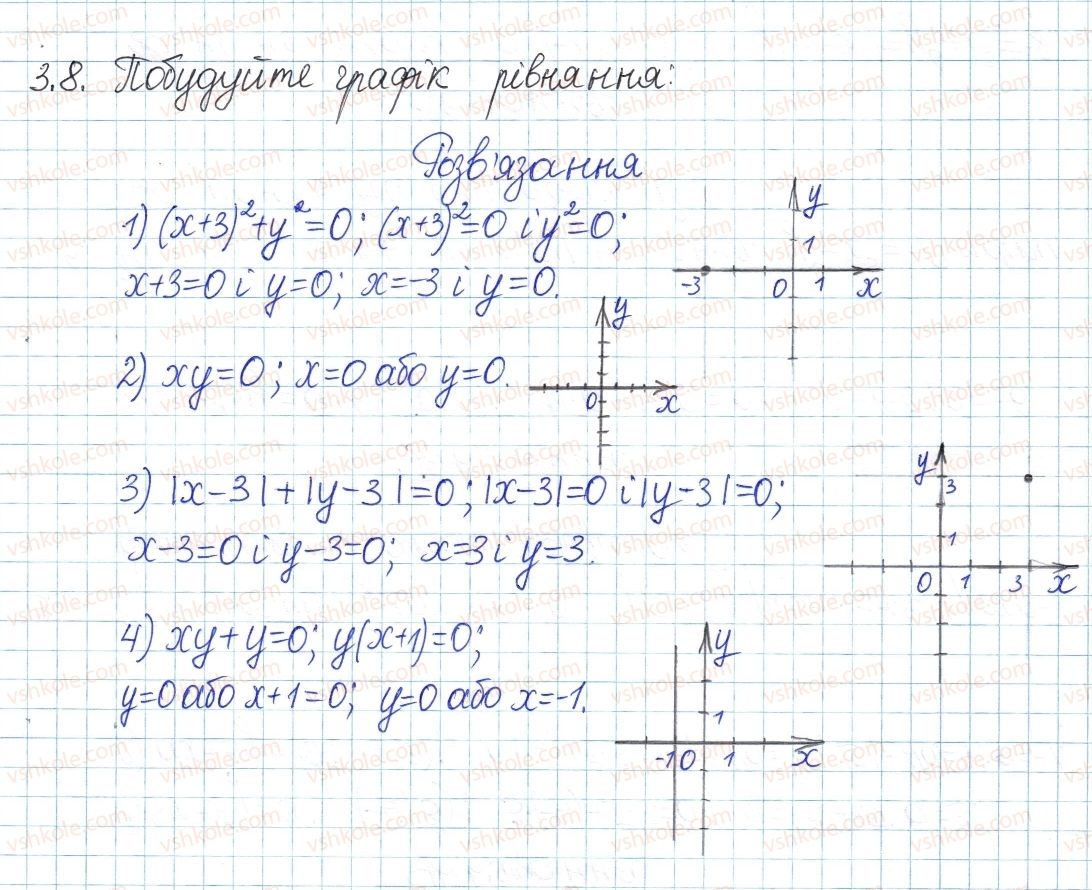 3.8. Побудуйте графік рівняння:
Розв'язання
1) (x+3)²+y²=0; (x+3)²=0 і y²=0;
x+3=0 і y=0; x=-3 і y=0.
y
1
-3 0 1 x
2) xy=0; x=0 або y=0.
y
0 x
3) |x-3|+|y-3|=0; |x-3|=0 і |y-3|=0;
x-3=0 і y-3=0; x=3 і y=3.
y
3
1
0 1 3 x
4) xy+y=0; y(x+1)=0;
y=0 або x+1=0; y=0 або x=-1.
y
1
-1 0 1 x
vshkole.com